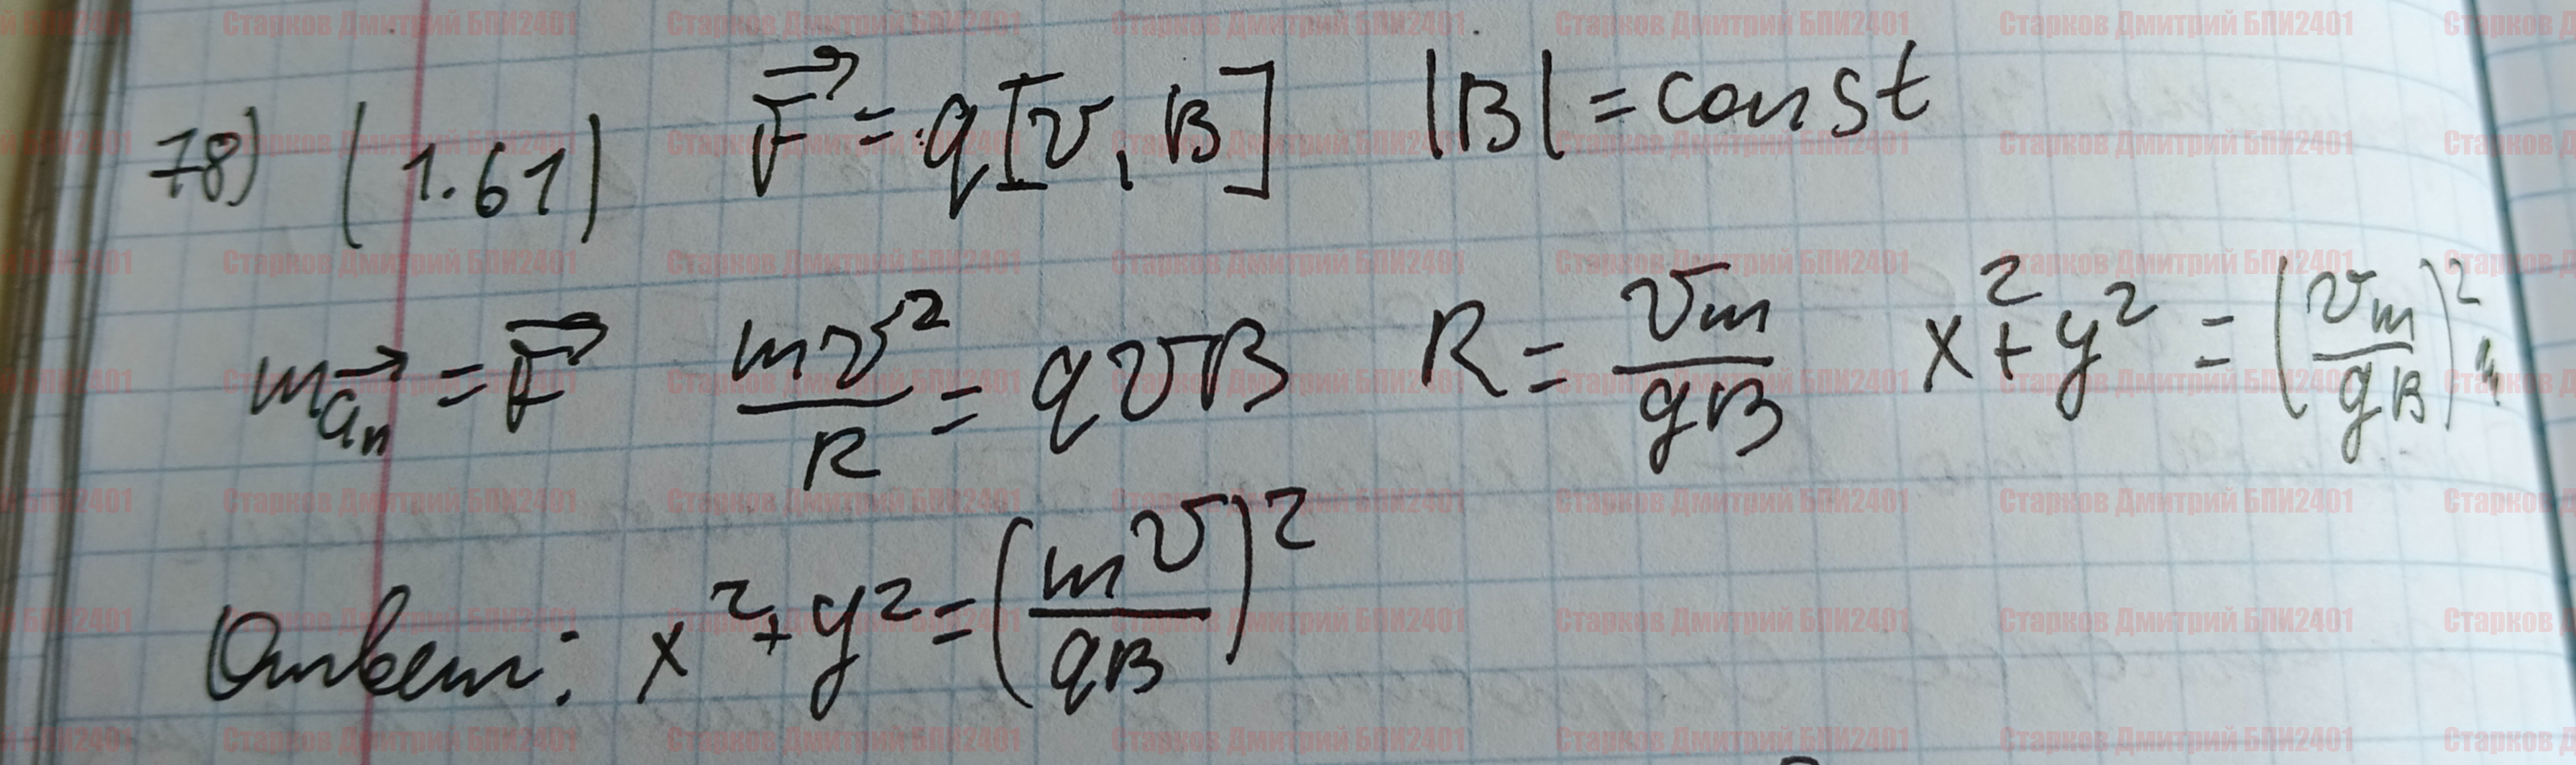 78) (1.61) F⃗ = q[v, B] |B| = const
ma⃗ₙ = F⃗ mv²/R = qvB R = vm/qB x² + y² = (vm/qB)²
Ответ: x² + y² = (mv/qB)²
Старков Дмитрий БПИ2401